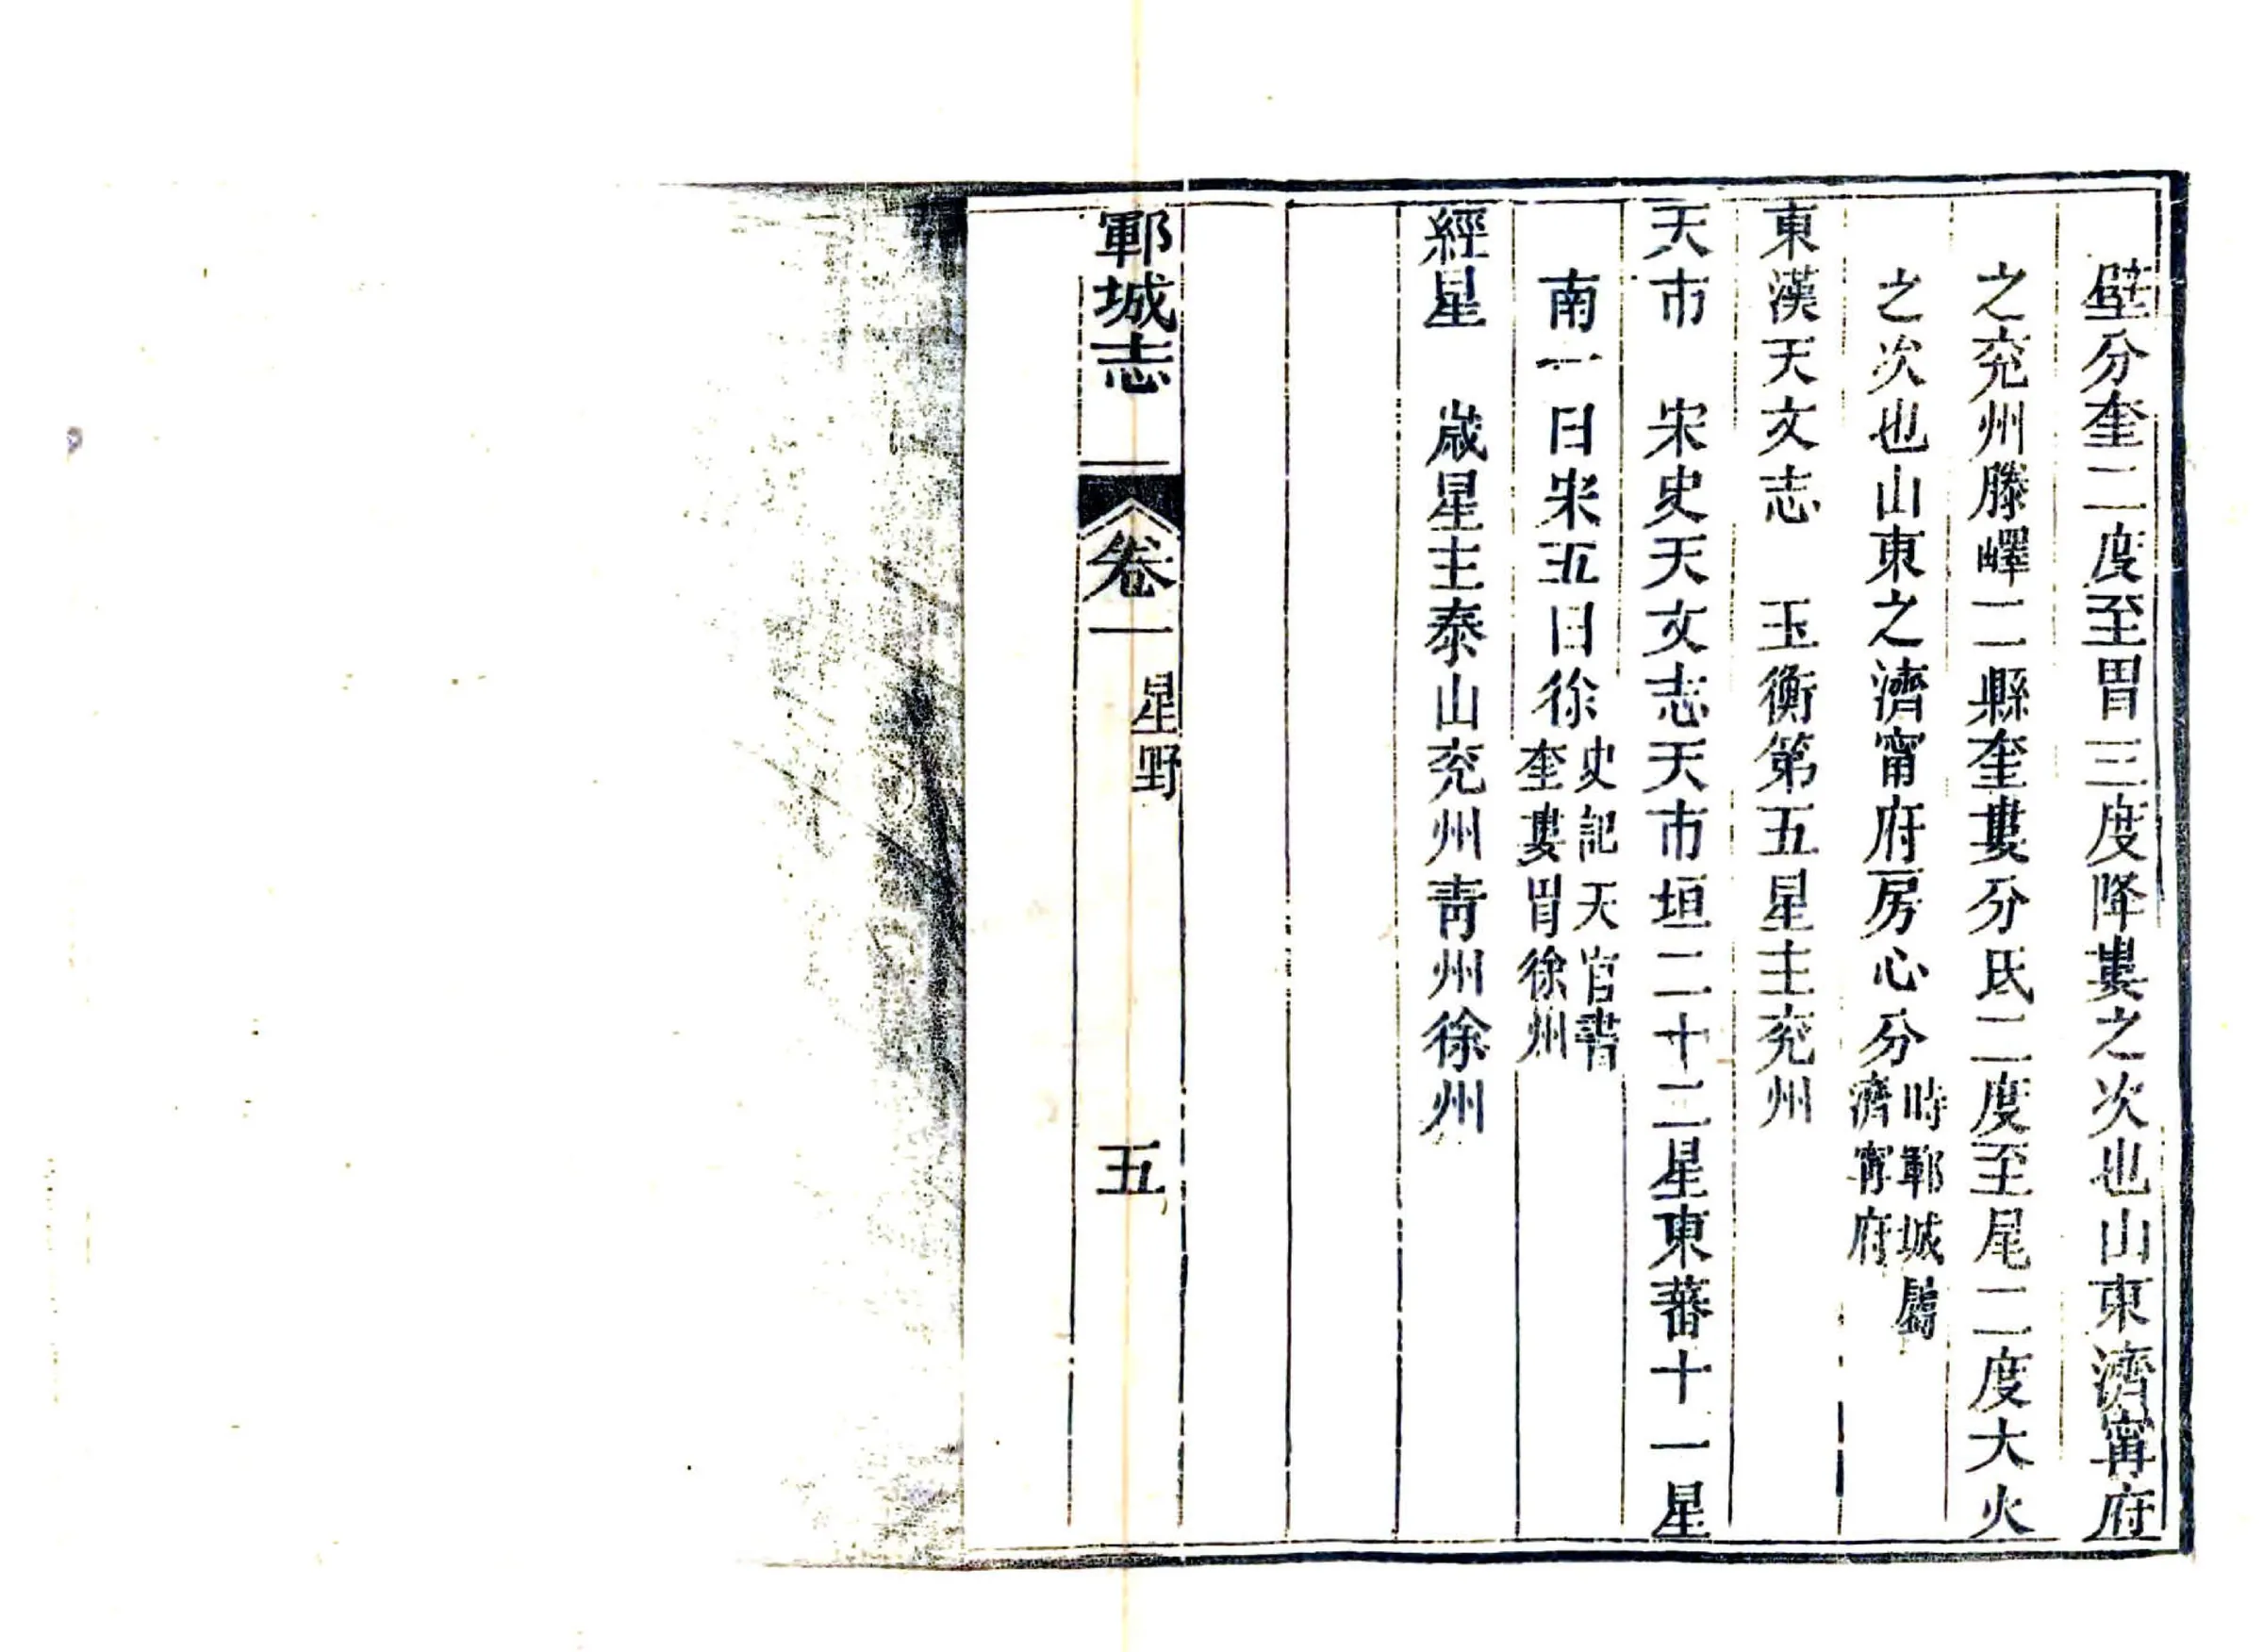 壁分奎二度至胃三度降婁之次也山東濟甯府
之兖州滕嶧二縣奎婁分氐二度至尾二度大火
之次也山東之濟甯府房心分時鄆城屬濟甯府
東漢天文志　玉衡第五星主兖州
天市　宋史天文志天市垣二十二星東蕃十一星
南一曰宋五曰徐史記天官書奎婁胃徐州
經星　歲星主泰山兖州青州徐州
鄆城志　卷一　星野　五